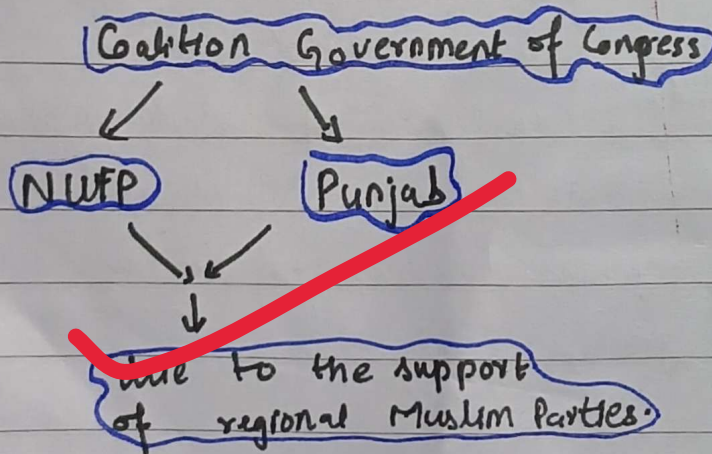 Coalition Government of Congress
NWFP Punjab
due to the support
of regional Muslim Parties.